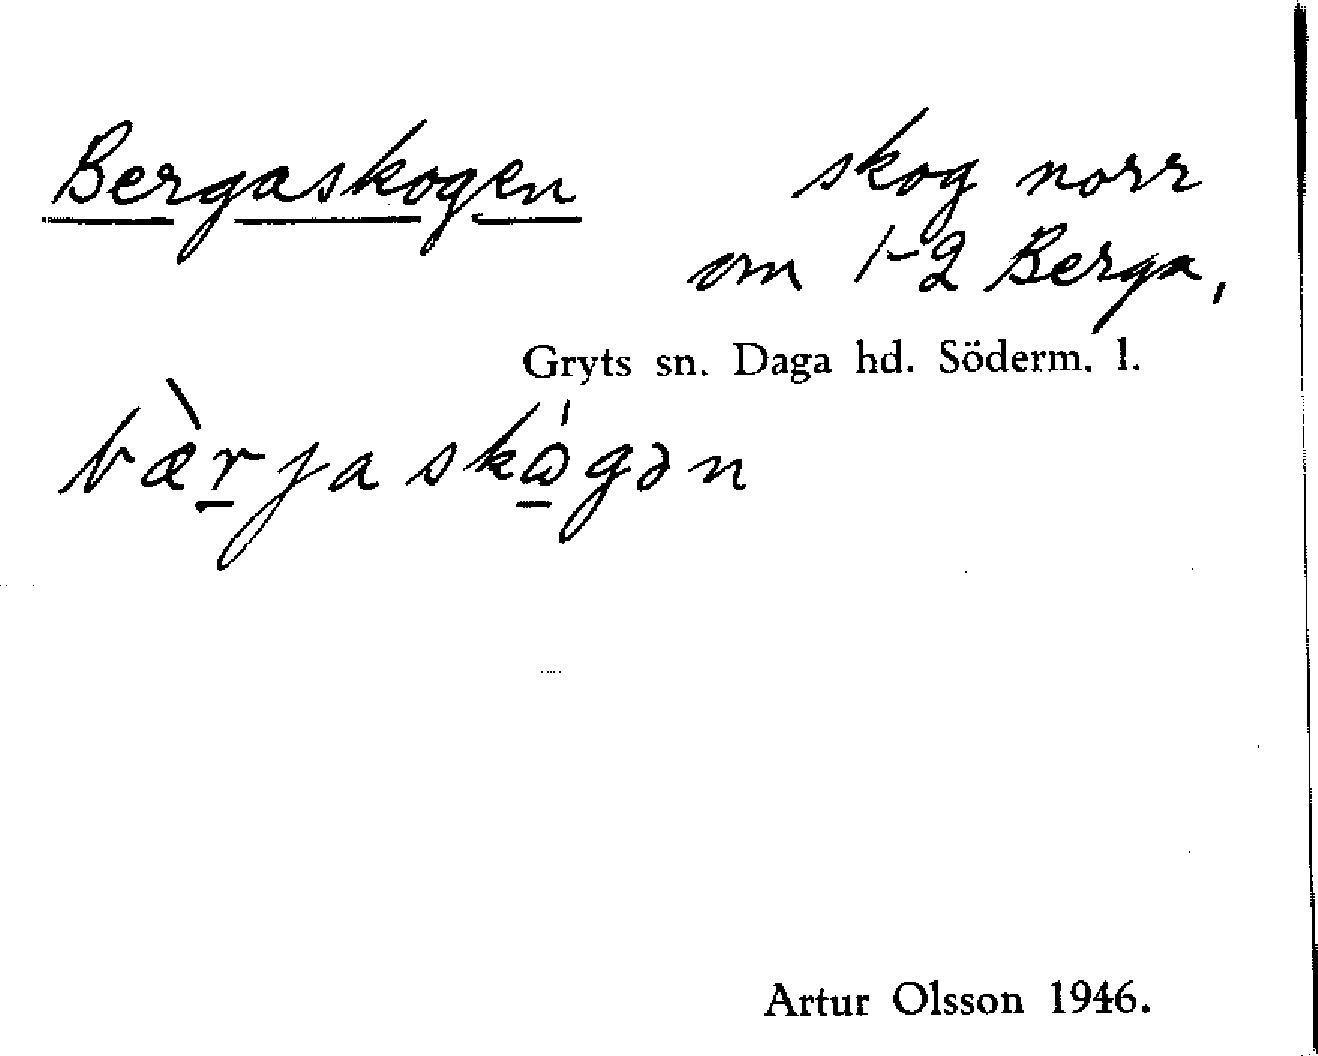 Bergaskogen skog norr
om 1-2 Berga,
Gryts sn. Daga hd. Söderm. l.
bæ̀r̲jaskɷ̲́gən
Artur Olsson 1946.